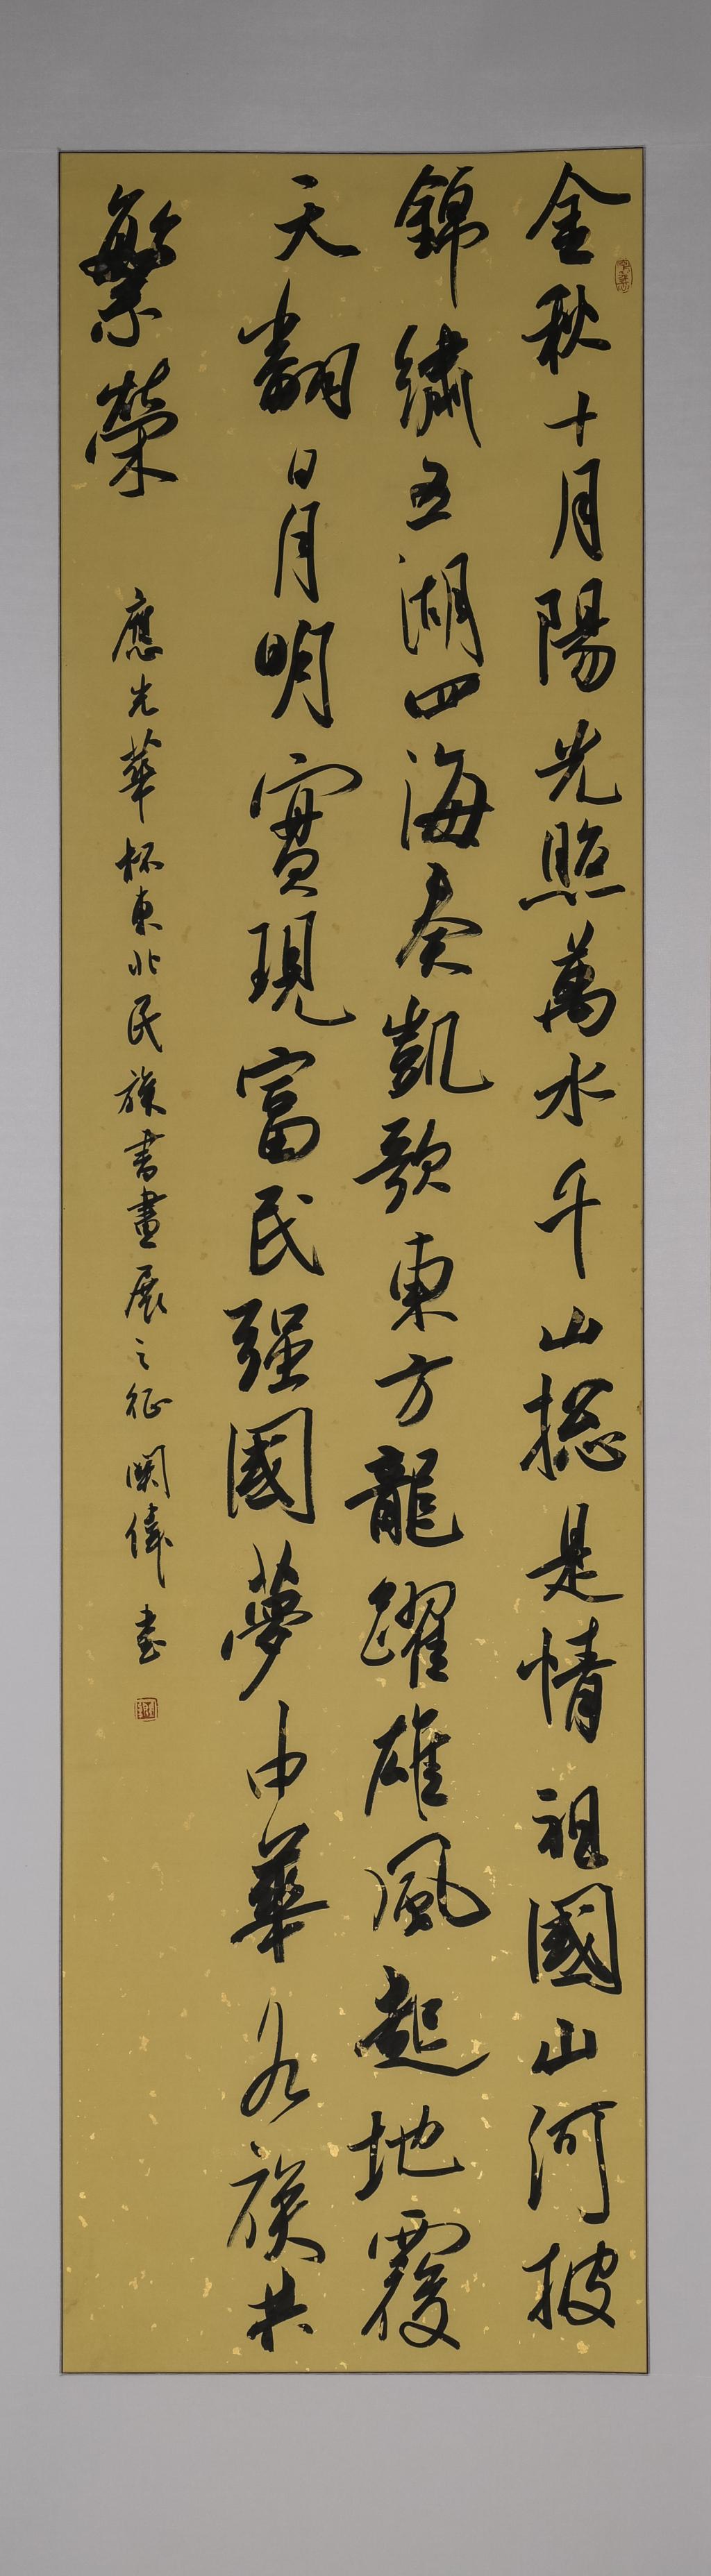 金秋十月陽光照萬水千山總是情祖國山河披
錦繡五湖四海奏凱歌東方龍躍雄風起地覆
天翻日月明實現富民强國夢中華各族共
繁榮
應光華杯東北民族書畫展之征 闕偉書